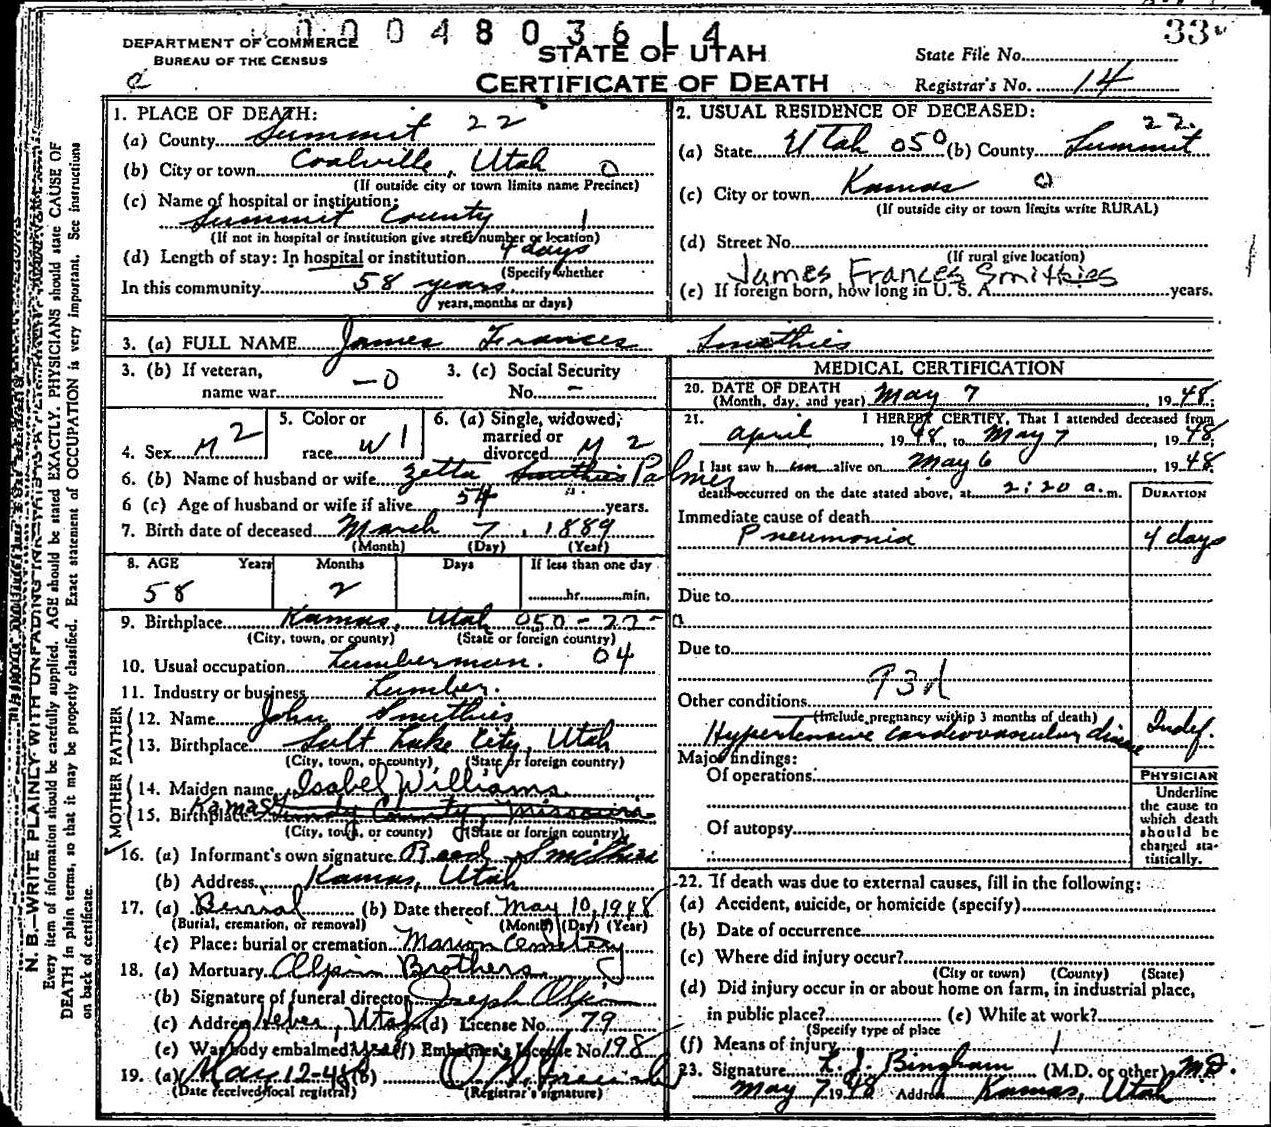 00048036 14
33
DEPARTMENT OF COMMERCE
BUREAU OF THE CENSUS
STATE OF UTAH
CERTIFICATE OF DEATH
State File No.
Registrar's No. 14
N. B.—WRITE PLAINLY WITH UNFADING
Every item of information should be carefully supplied. AGE should be stated EXACTLY. PHYSICIANS should state CAUSE OF
DEATH in plain terms, so that it may be properly classified. Exact statement of OCCUPATION is very important. See instructions
on back of certificate.
1. PLACE OF DEATH:
(a) County Summit 22
(b) City or town Coalville, Utah 0
(If outside city or town limits name Precinct)
(c) Name of hospital or institution:
Summit County 1
(If not in hospital or institution give street number or location)
(d) Length of stay: In hospital or institution 4 days
(Specify whether
In this community 58 years
years, months or days)
2. USUAL RESIDENCE OF DECEASED:
(a) State Utah 050 (b) County Summit 22
(c) City or town Kamas 0
(If outside city or town limits write RURAL)
(d) Street No.
(If rural give location)
James Frances Smithies
(e) If foreign born, how long in U. S. A. years.
3. (a) FULL NAME James Frances Smithies
3. (b) If veteran, name war —0
3. (c) Social Security No. –
4. Sex M 2
5. Color or race W 1
6. (a) Single, widowed, married or divorced M 2
6. (b) Name of husband or wife Zetta Smithies Palmer
6 (c) Age of husband or wife if alive 54 years.
7. Birth date of deceased March 7, 1889
(Month) (Day) (Year)
8. AGE Years Months Days If less than one day
58 2 hr. min.
9. Birthplace Kamas, Utah 050-22-0
(City, town, or county) (State or foreign country)
10. Usual occupation Lumberman. 04
11. Industry or business Lumber.
FATHER
12. Name John Smithies
13. Birthplace Salt Lake City, Utah
(City, town, or county) (State or foreign country)
MOTHER
14. Maiden name Isabel Williams
15. Birthplace Kamas Grundy County, Missouri
(City, town, or county) (State or foreign country)
16. (a) Informant's own signature Reed Smithies
(b) Address Kamas, Utah
17. (a) Burial (b) Date thereof May 10, 1948
(Burial, cremation, or removal) (Month) (Day) (Year)
(c) Place: burial or cremation Marion Cemetery
18. (a) Mortuary Olpin Brothers
(b) Signature of funeral director Joseph Olpin
(c) Address Heber, Utah (d) License No. 79
(e) Was body embalmed Yes (f) Embalmer's License No. 198
19. (a) May 12-48 (b)
(Date received local registrar) (Registrar's signature)
MEDICAL CERTIFICATION
20. DATE OF DEATH
(Month, day, and year) May 7 , 1948;
21. I HEREBY CERTIFY, That I attended deceased from
April , 1948, to May 7 , 1948;
I last saw him alive on May 6 , 1948;
death occurred on the date stated above, at 2:20 a.m.
DURATION
Immediate cause of death
Pneumonia 4 days
Due to
Due to
Other conditions 93d
(Include pregnancy within 3 months of death)
Hypertensive cardiovascular disease Indef.
Major findings:
Of operations
Of autopsy
PHYSICIAN
Underline
the cause to
which death
should be
charged sta-
tistically.
22. If death was due to external causes, fill in the following:
(a) Accident, suicide, or homicide (specify)
(b) Date of occurrence
(c) Where did injury occur?
(City or town) (County) (State)
(d) Did injury occur in or about home on farm, in industrial place,
in public place? (e) While at work?
(Specify type of place
(f) Means of injury
23. Signature L. J. Bingham (M.D. or other) M.D.
May 7 1948 Address Kamas, Utah